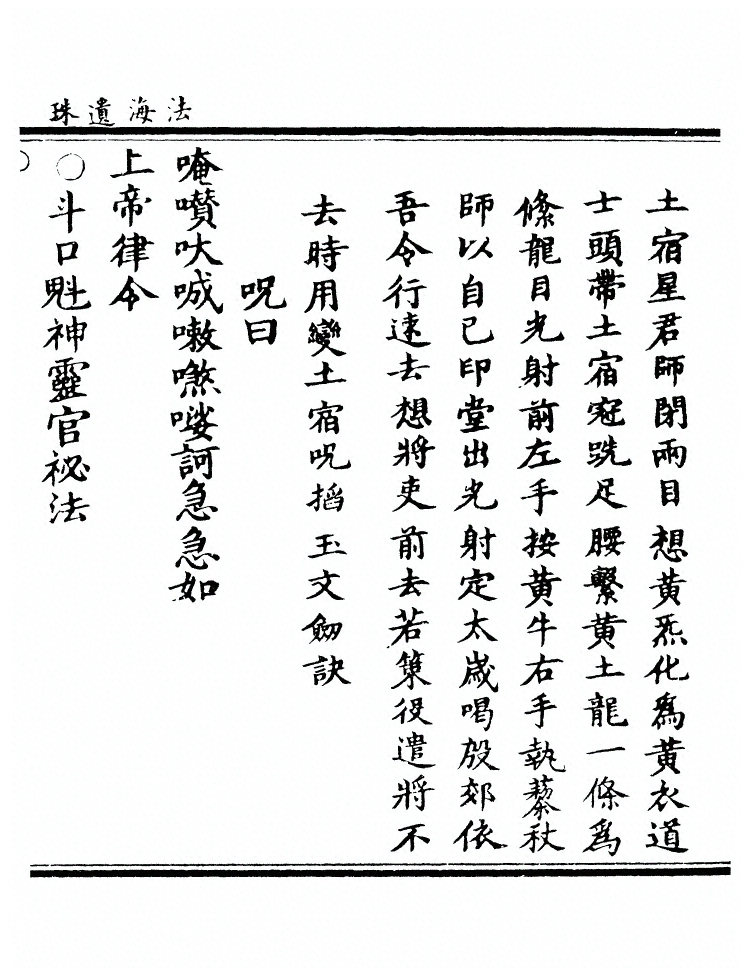 法海遺珠
土宿星君師閉兩目想黃炁化爲黃衣道
士頭帶土宿冠跣足腰繫黃土龍一條爲
絛龍目光射前左手按黃牛右手執藜杖
師以自己印堂出光射定太歲喝殷郊依
吾令行速去想將吏前去若策役遣將不
去時用變土宿呪搯玉文劒訣
呪曰
唵囋吠㖕嗷㗛㗭訶急急如
上帝律令
○斗口魁神靈官祕法